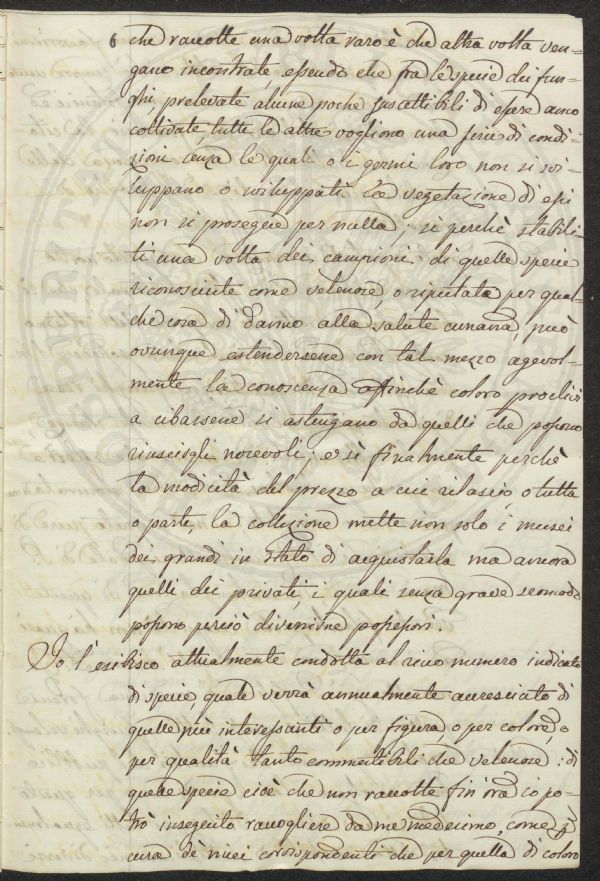 6 che raccolte una volta raro è che altra volta ven-
gano incontrate, essendo che fra le specie dei fun-
ghi, prelevate alcune poche suscettibili di essere anco
coltivate, tutte le altre vogliono una serie di condi-
zioni senza le quali o i germi loro non si svi-
luppano o sviluppati la vegetazione di essi
non si prosegue per nulla; sì perchè stabili-
ti una volta dei campioni di quelle specie
riconosciute come velenose, o reputate per qual-
che cosa di danno alla salute umana, può
ovunque estendersene con tal mezzo agevol-
mente la conoscenza affinchè coloro proclivi
a cibarsene si astengano da quelli che possono
riuscirgli nocevoli; e sì finalmente perchè
la modicità del prezzo a cui rilascio, o tutta
o parte, la collezione mette non solo i musei
dei grandi in stato di acquistarla ma ancora
quelli dei privati, i quali senza grave scomodo
possono perciò divenirne possessori.
Io l'esibisco attualmente condotta al vivo numero indicato
di specie, quale verrà annualmente accresciuto di
quelle più interessanti o per figura, o per colore, o
per qualità tanto commestibili che velenose: di
quelle specie cioè che non raccolte fin'ora io po-
trò inseguito raccogliere da me medesimo, come p
cura de' miei corrispondenti che per quella di coloro